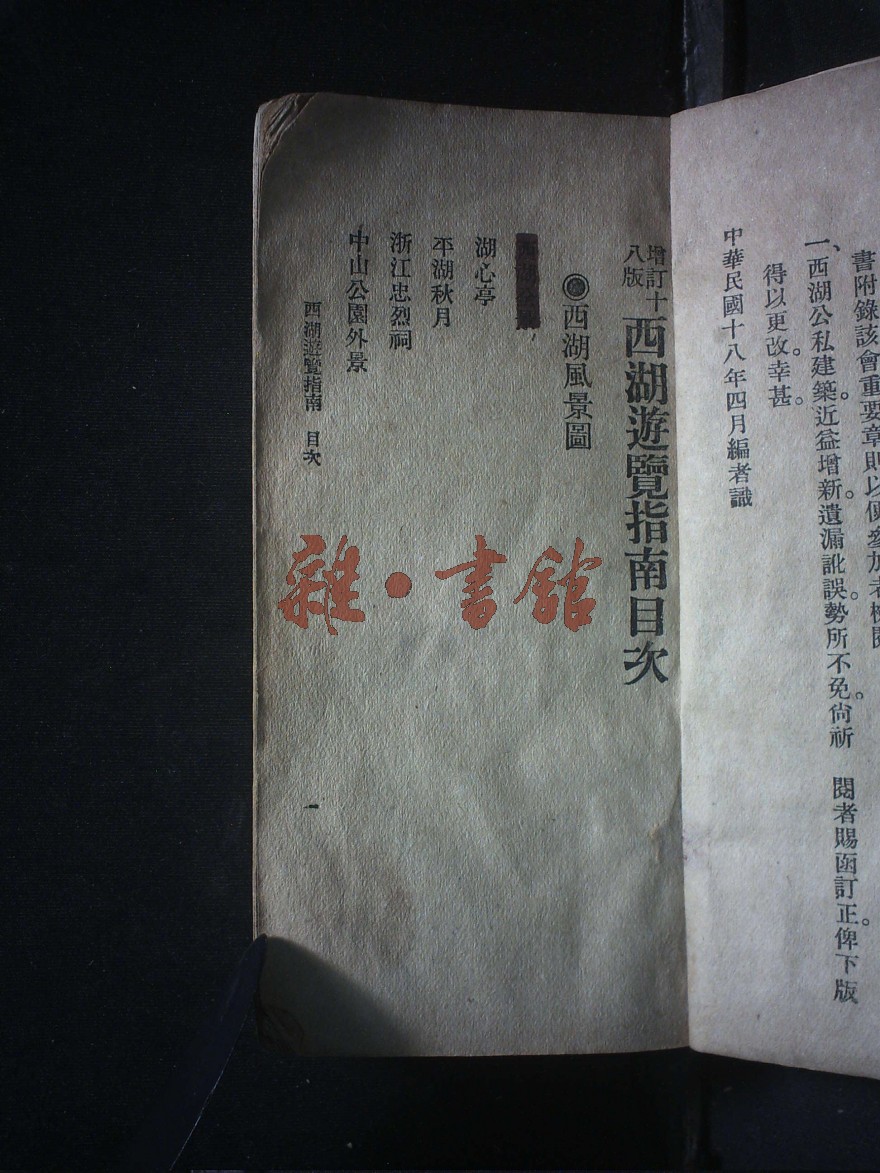 書附錄該會重要章則以便參加者檢閱
一、西湖公私建築近益增新。遺漏訛誤。勢所不免。尙祈 閱者賜函訂正。俾下版
得以更改。幸甚。
中華民國十八年四月編者識
增訂十八版 西湖遊覽指南目次
◉西湖風景圖
湖心亭
平湖秋月
浙江忠烈祠
中山公園外景
西湖遊覽指南 目次
一
雜·書館